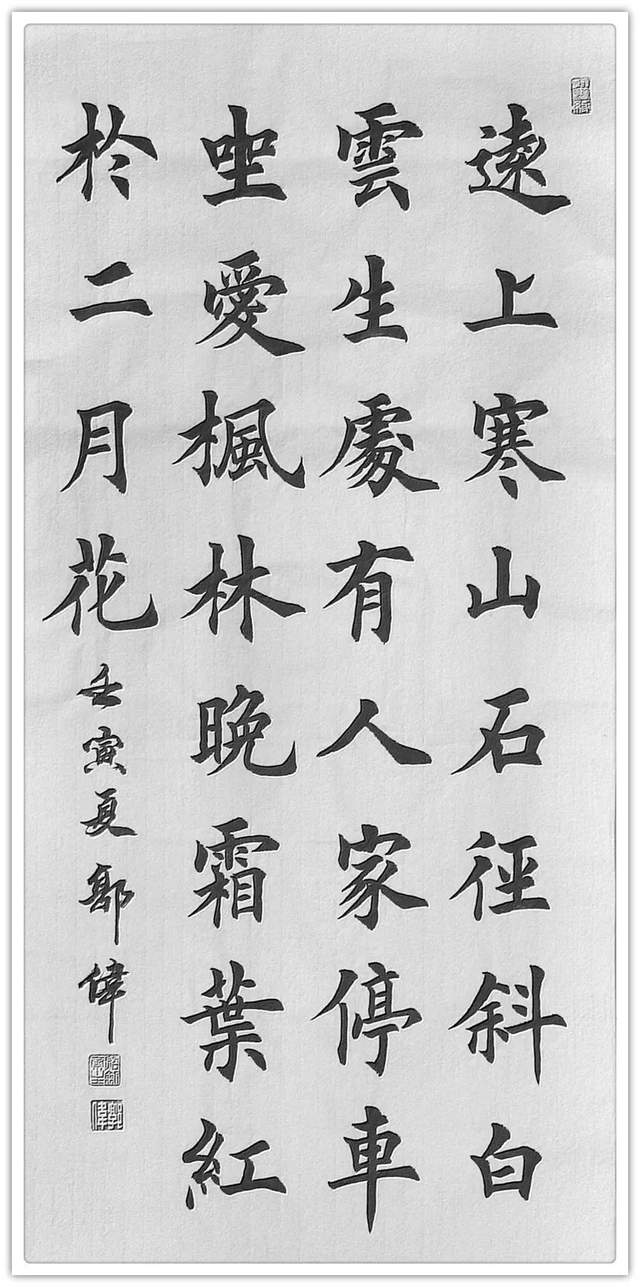 遠上寒山石徑斜白
雲生處有人家停車
坐愛楓林晚霜葉紅
於二月花
壬寅夏郭偉